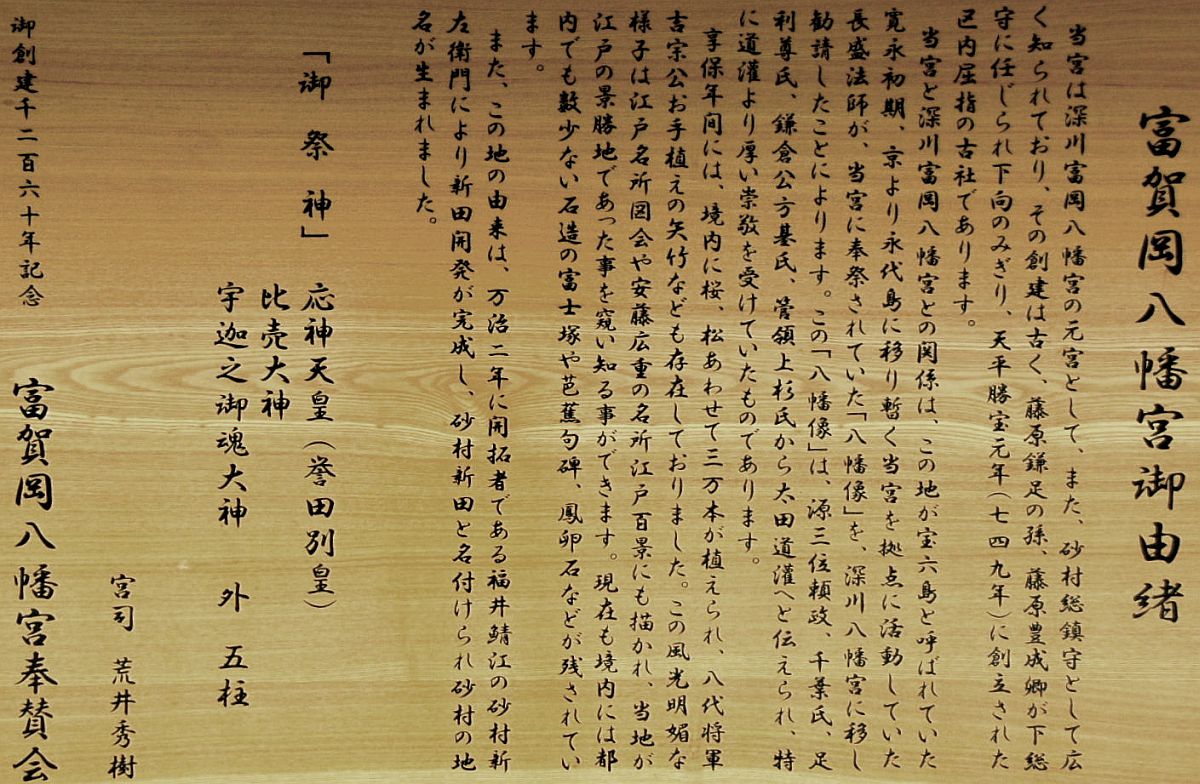 富賀岡八幡宮御由緒
当宮は深川富岡八幡宮の元宮として、また、砂村総鎮守として広
く知られており、その創建は古く、藤原鎌足の孫、藤原豊成卿が下総
守に任じられ下向のみぎり、天平勝宝元年(七四九年)に創立された
区内屈指の古社であります。
当宮と深川富岡八幡宮との関係は、この地が宝六島と呼ばれていた
寛永初期、京より永代島に移り暫く当宮を拠点に活動していた
長盛法師が、当宮に奉祭されていた「八幡像」を、深川八幡宮に移し
勧請したことによります。この「八幡像」は、源三位頼政、千葉氏、足
利尊氏、鎌倉公方基氏、管領上杉氏から太田道灌へと伝えられ、特
に道灌より厚い崇敬を受けていたものであります。
享保年間には、境内に桜、松あわせて三万本が植えられ、八代将軍
吉宗公お手植えの矢竹なども存在しておりました。この風光明媚な
様子は江戸名所図会や安藤広重の名所江戸百景にも描かれ、当地が
江戸の景勝地であった事を窺い知る事ができます。現在も境内には都
内でも数少ない石造の富士塚や芭蕉句碑、鳳卵石などが残されてい
ます。
また、この地の由来は、万治二年に開拓者である福井鯖江の砂村新
左衛門により新田開発が完成し、砂村新田と名付けられ砂村の地
名が生まれました。
「御祭神」 応神天皇(誉田別皇)
比売大神
宇迦之御魂大神 外 五柱
宮司 荒井秀樹
富賀岡八幡宮奉賛会
御創建千二百六十年記念